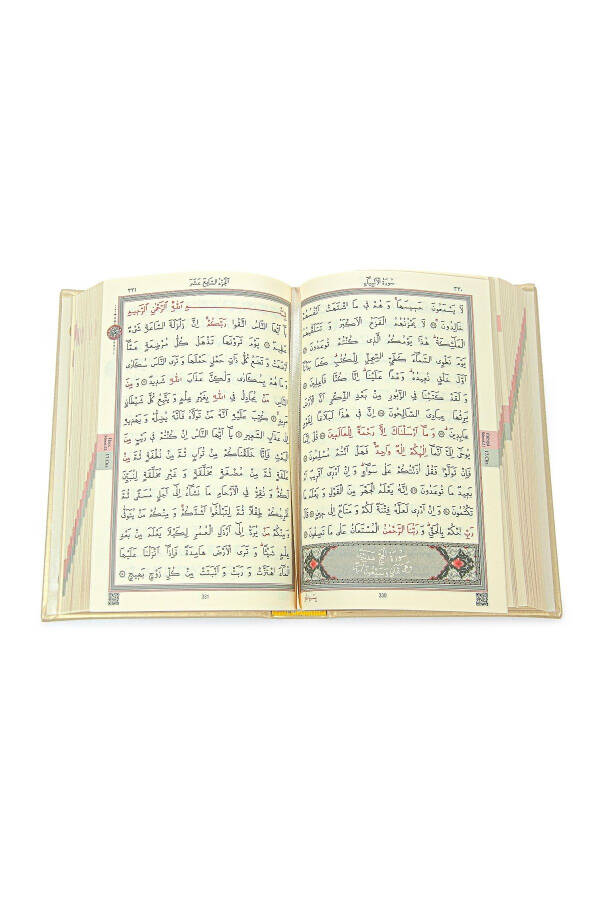 سورة الأنبياء ٣٣٠
لَا يَسْمَعُونَ حَسِيسَهَا وَهُمْ فِي مَا اشْتَهَتْ اَنْفُسُهُمْ
خَالِدُونَ ۞ لَا يَحْزُنُهُمُ الْفَزَعُ الْاَكْبَرُ وَتَتَلَقّٰيهُمُ
الْمَلٰٓئِكَةُ هٰذَا يَوْمُكُمُ الَّذِي كُنْتُمْ تُوعَدُونَ ۞
يَوْمَ نَطْوِي السَّمَٓاءَ كَطَيِّ السِّجِلِّ لِلْكُتُبِ كَمَا بَدَأْنَٓا
اَوَّلَ خَلْقٍ نُعِيدُهُ وَعْدًا عَلَيْنَا اِنَّا كُنَّا فَاعِلِينَ ۞
وَلَقَدْ كَتَبْنَا فِي الزَّبُورِ مِنْ بَعْدِ الذِّكْرِ اَنَّ الْاَرْضَ
يَرِثُهَا عِبَادِيَ الصَّالِحُونَ ۞ اِنَّ فِي هٰذَا لَبَلَاغًا لِقَوْمٍ
عَابِدِينَ ۞ وَمَٓا اَرْسَلْنَاكَ اِلَّا رَحْمَةً لِلْعَالَمِينَ ۞ قُلْ اِنَّمَا
يُوحٰٓى اِلَيَّ اَنَّمَٓا اِلٰهُكُمْ اِلٰهٌ وَاحِدٌ فَهَلْ اَنْتُمْ مُسْلِمُونَ ۞
فَاِنْ تَوَلَّوْا فَقُلْ اٰذَنْتُكُمْ عَلٰى سَوَٓاءٍ وَاِنْ اَدْرِٓي اَقَرِيبٌ اَمْ
بَعِيدٌ مَا تُوعَدُونَ ۞ اِنَّهُ يَعْلَمُ الْجَهْرَ مِنَ الْقَوْلِ وَيَعْلَمُ مَا
تَكْتُمُونَ ۞ وَاِنْ اَدْرِي لَعَلَّهُ فِتْنَةٌ لَكُمْ وَمَتَاعٌ اِلٰى حِينٍ ۞ قَالَ
رَبِّ احْكُمْ بِالْحَقِّ وَرَبُّنَا الرَّحْمٰنُ الْمُسْتَعَانُ عَلٰى مَا تَصِفُونَ ۞
سورة الحج مدنية
وهي ثمان وسبعون آية
330
الجزء السابع عشر ٣٣١
بِسْمِ اللّٰهِ الرَّحْمٰنِ الرَّحِيمِ
يَٓا اَيُّهَا النَّاسُ اتَّقُوا رَبَّكُمْ اِنَّ زَلْزَلَةَ السَّاعَةِ شَيْءٌ
عَظِيمٌ ۞ يَوْمَ تَرَوْنَهَا تَذْهَلُ كُلُّ مُرْضِعَةٍ عَمَّٓا
اَرْضَعَتْ وَتَضَعُ كُلُّ ذَاتِ حَمْلٍ حَمْلَهَا وَتَرَى النَّاسَ سُكَارٰى
وَمَا هُمْ بِسُكَارٰى وَلٰكِنَّ عَذَابَ اللّٰهِ شَدِيدٌ ۞ وَمِنَ
النَّاسِ مَنْ يُجَادِلُ فِي اللّٰهِ بِغَيْرِ عِلْمٍ وَيَتَّبِعُ كُلَّ شَيْطَانٍ
مَرِيدٍ ۞ كُتِبَ عَلَيْهِ اَنَّهُ مَنْ تَوَلَّاهُ فَاَنَّهُ يُضِلُّهُ وَيَهْدِيهِ
اِلٰى عَذَابِ السَّعِيرِ ۞ يَٓا اَيُّهَا النَّاسُ اِنْ كُنْتُمْ فِي رَيْبٍ مِنَ
الْبَعْثِ فَاِنَّا خَلَقْنَاكُمْ مِنْ تُرَابٍ ثُمَّ مِنْ نُطْفَةٍ ثُمَّ مِنْ
عَلَقَةٍ ثُمَّ مِنْ مُضْغَةٍ مُخَلَّقَةٍ وَغَيْرِ مُخَلَّقَةٍ لِنُبَيِّنَ
لَكُمْ وَنُقِرُّ فِي الْاَرْحَامِ مَا نَشَٓاءُ اِلٰٓى اَجَلٍ مُسَمًّى ثُمَّ
نُخْرِجُكُمْ طِفْلًا ثُمَّ لِتَبْلُغُٓوا اَشُدَّكُمْ وَمِنْكُمْ مَنْ يُتَوَفّٰى
وَمِنْكُمْ مَنْ يُرَدُّ اِلٰٓى اَرْذَلِ الْعُمُرِ لِكَيْلَا يَعْلَمَ مِنْ بَعْدِ
عِلْمٍ شَيْـًٔا وَتَرَى الْاَرْضَ هَامِدَةً فَاِذَٓا اَنْزَلْنَا عَلَيْهَا
الْمَٓاءَ اهْتَزَّتْ وَرَبَتْ وَاَنْبَتَتْ مِنْ كُلِّ زَوْجٍ بَهِيجٍ ۞
331